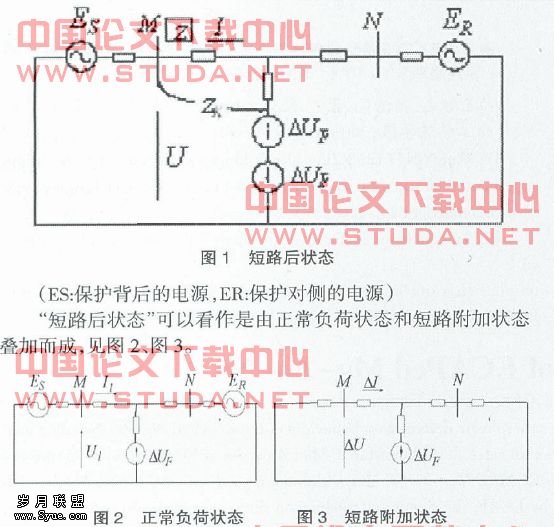 E_S M Z I N E_R
中国论文下载中心
WWW.STUDA.NET
Z_K
ΔU_F
U
ΔU_F
中国论文下载中心
WWW.STUDA.NET
图1 短路后状态
(ES:保护背后的电源,ER:保护对侧的电源)
“短路后状态”可以看作是由正常负荷状态和短路附加状态
叠加而成,见图2、图3。
中国论文下载中心
WWW.STUDA.NET
E_S M I_l N E_R
U_l ΔU_F
M ΔI N
ΔU ΔU_F
岁月联盟
www.Syue.com
图2 正常负荷状态
图3 短路附加状态